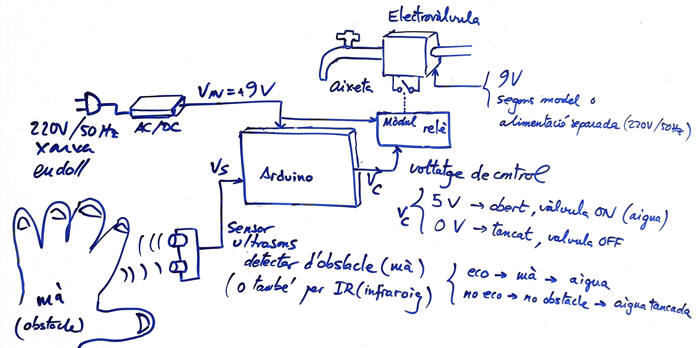 Electrovàlvula
aixeta
9V
segons model o
alimentació separada (220V/50Hz)
VAV = +9V
AC/DC
220V/50Hz
xarxa
endoll
Mòdul
relè
Arduino
Vs
Vc
voltatge de control
Vc
5V → obert, vàlvula ON (aigua)
0V → tancat, valvula OFF
Sensor
ultrasons
detector d'obstacle (mà)
(o també per IR (infraroig)
eco → mà → aigua
no eco → no obstacle → aigua tancada
mà
(obstacle)